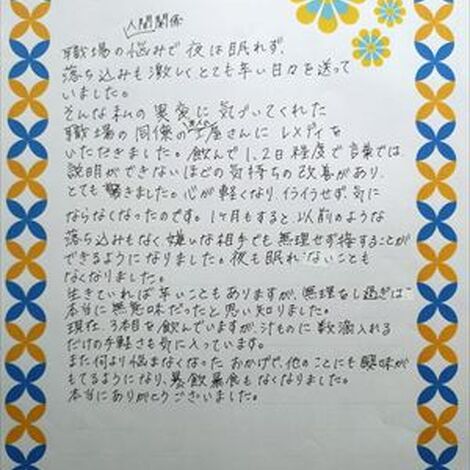 人間関係
職場の悩みで夜は眠れず、
落ち込みも激しくとても辛い日々を送って
いました。
そんな私の異変に気づいてくれた
職場の同僚の 屋さんに レメディを
いただきました。飲んで1、2日程度で言葉では
説明ができないほどの気持ちの改善があり、
とても驚きました。心が軽くなり、イライラせず、気に
ならなくなったのです。1ヶ月もすると、以前のような
落ち込みもなく、嫌いな相手でも無理せず接することが
できるようになりました。夜も眠れないことも
なくなりました。
生きていれば辛いこともありますが、無理をし過ぎは
本当に無意味だったと思い知りました。
現在、3本目を飲んでいますが、汁ものに数滴入れる
だけの手軽さも気に入っています。
また何より悩まなくなったおかげで、他のことにも興味が
もてるようになり、暴飲暴食もなくなりました。
本当にありがとうございました。